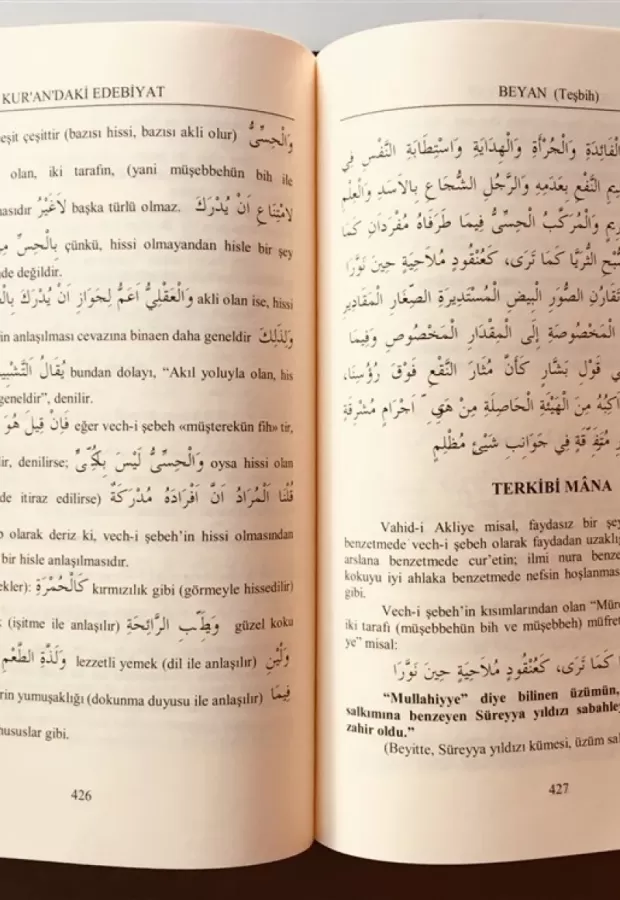 KUR'AN'DAKİ EDEBİYAT
çeşittir (bazısı hissi, bazısı akli olur) وَالْحِسِّىُّ
olan, iki tarafın, (yani müşebbehün bih ile
لِامْتِنَاعِ اَنْ يُدْرَكَ başka türlü olmaz. لَاغَيْرُ
بِالْحِسِّ çünkü, hissi olmayandan hisle bir şey
değildir.
akli olan ise, hissi وَالْعَقْلِىُّ اَعَمُّ لِجَوَازِ اَنْ يُدْرَكَ
anlaşılması cevazına binaen daha geneldir وَلِذٰلِكَ
يُقَالُ bundan dolayı, “Akıl yoluyla olan, his
geneldir”, denilir.
eğer vech-i şebeh «müşterekün fih» tir, فَاِنْ قِيلَ هُوَ
denilirse; وَالْحِسِّىُّ لَيْسَ بِكُلِّىٍّ oysa hissi olan
itiraz edilirse) قُلْنَا الْمُرَادُ اَنَّ اَفْرَادَهُ مُدْرَكَةٌ
olarak deriz ki, vech-i şebeh’in hissi olmasından
bir hisle anlaşılmasıdır.
كَالْحُمْرَةِ kırmızılık gibi (görmeyle hissedilir)
(işitme ile anlaşılır) وَطِيبِ الرَّائِحَةِ güzel koku
وَلَذَّةِ الطَّعْمِ lezzetli yemek (dil ile anlaşılır) وَلِينِ
yumuşaklığı (dokunma duyusu ile anlaşılır) فِيمَا
hususlar gibi.
426
BEYAN (Teşbih)
الْفَائِدَةِ وَالْجُرْأَةِ وَالْهِدَايَةِ وَاسْتِطَابَةِ النَّفْسِ فِى
النَّفْعِ بِعَدَمِهِ وَالرَّجُلِ الشُّجَاعِ بِالْاَسَدِ وَالْعِلْمِ
وَالْمُرَكَّبُ الْحِسِّىُّ فِيمَا طَرَفَاهُ مُفْرَدَانِ كَمَا
الثُّرَيَّا كَمَا تَرَى، كَعُنْقُودِ مُلَاحِيَّةٍ حِينَ نَوَّرَا
تَقَارُنِ الصُّوَرِ الْبِيضِ الْمُسْتَدِيرَةِ الصِّغَارِ الْمَقَادِيرِ
الْمَخْصُوصَةِ اِلَى الْمِقْدَارِ الْمَخْصُوصِ وَفِيمَا
فِي قَوْلِ بَشَّارٍ كَأَنَّ مُثَارَ النَّقْعِ فَوْقَ رُؤُسِنَا،
مِنَ الْهَيْئَةِ الْحَاصِلَةِ مِنْ اَجْرَامٍ مُشْرِقَةٍ
مُتَفَرِّقَةٍ فِي جَوَانِبِ شَيْئٍ مُظْلِمٍ
TERKİBİ MÂNA
Vahid-i Akliye misal, faydasız bir
benzetmede vech-i şebeh olarak faydadan
arslana benzetmede cur’etin; ilmi nura
kokuyu iyi ahlaka benzetmede nefsin
gibi.
Vech-i şebeh’in kısımlarından olan
iki tarafı (müşebbehün bih ve müşebbeh)
misal:
كَمَا تَرَى، كَعُنْقُودِ مُلَاحِيَّةٍ حِينَ نَوَّرَا
“Mullahiyye” diye bilinen üzümün,
salkımına benzeyen Süreyya yıldızı
zahir oldu.”
(Beyitte, Süreyya yıldızı kümesi, üzüm
427